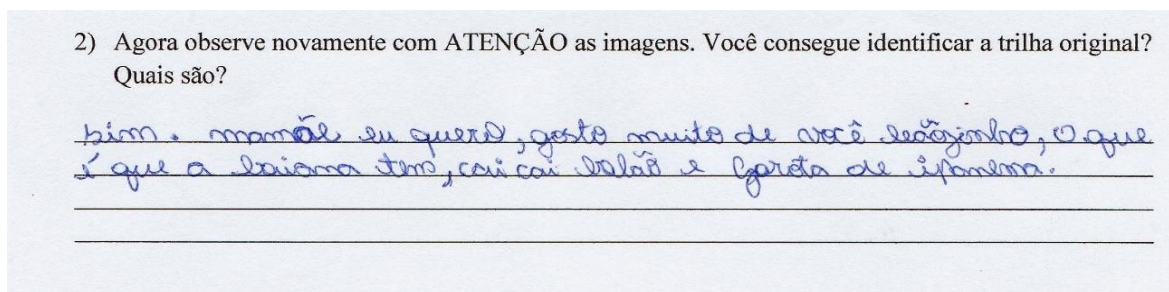 2) Agora observe novamente com ATENÇÃO as imagens. Você consegue identificar a trilha original?
Quais são?
sim. mamãe eu quero, gosto muito de você leãozinho, O que
é que a baiana tem, cai cai balão e Garota de ipanema.